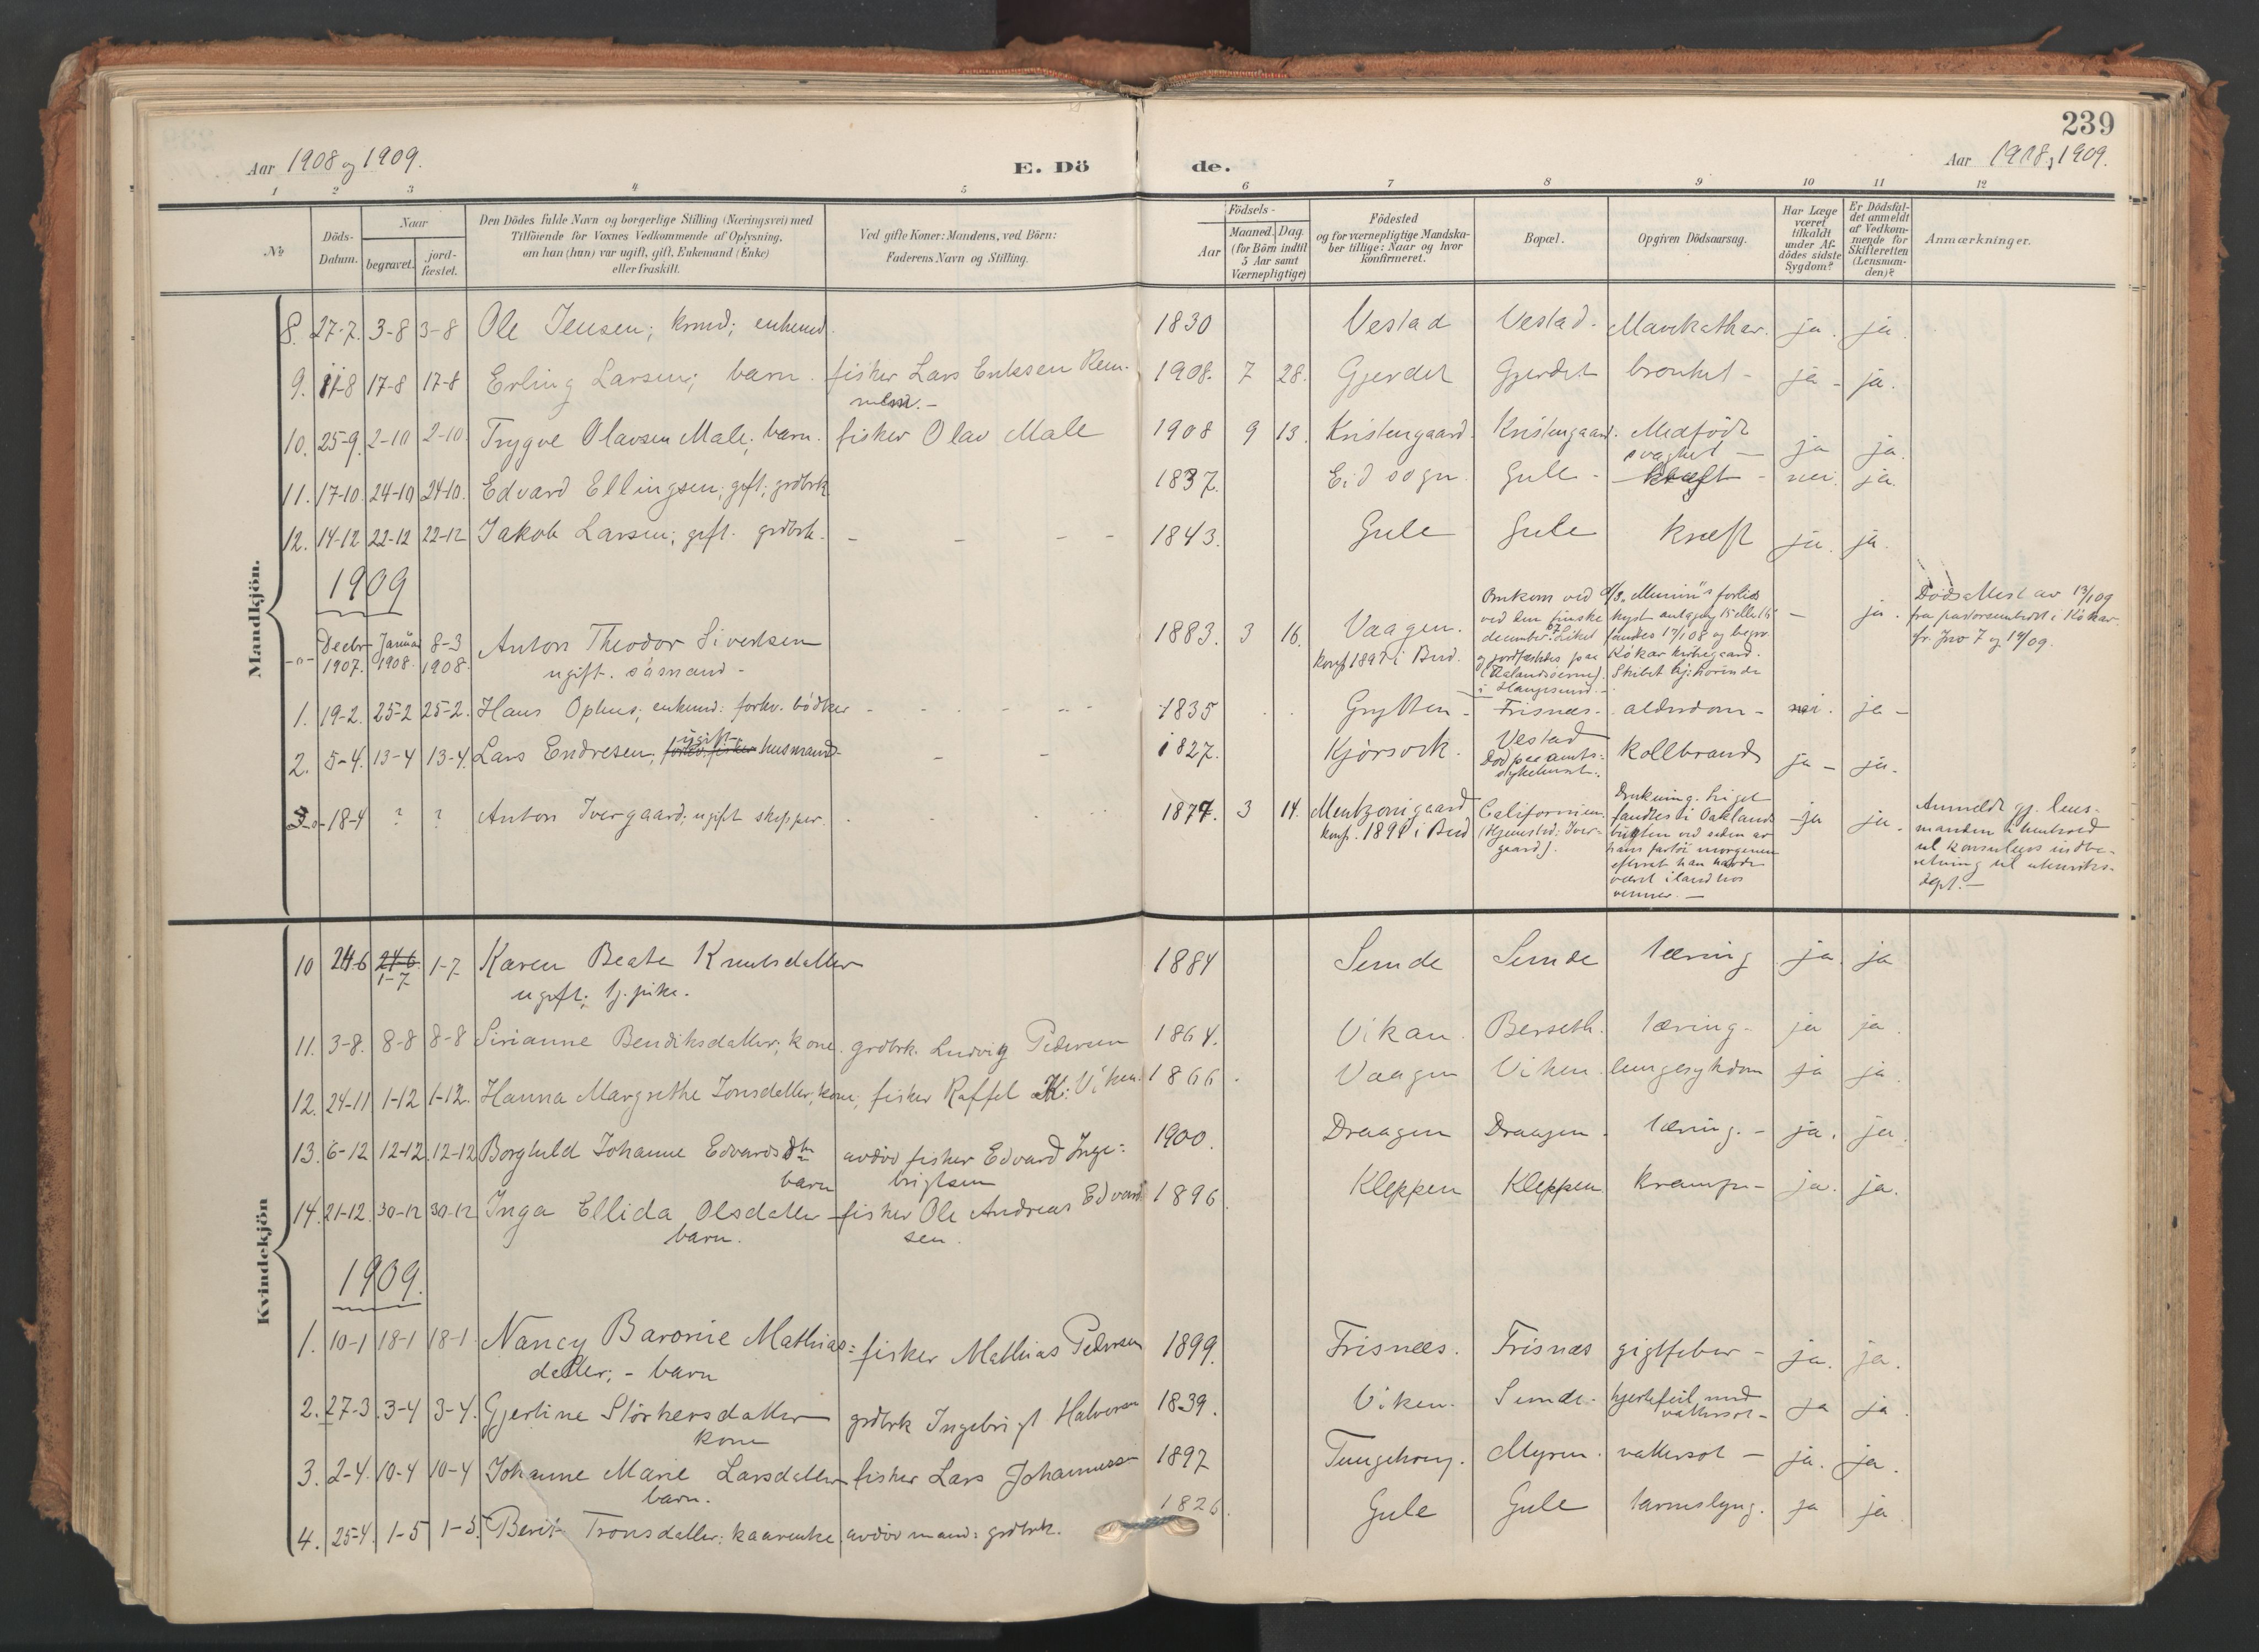 239
Aar 1908 og 1909.
E. Dö de.
Aar 1908 og 1909.
1 2 3 4 5 6 7 8 9 10 11 12
No
Döds-Datum.
Naar
begravet.
jord-fæstet.
Den Dödes fulde Navn og borgerlige Stilling (Næringsvei) med
Tilföiende for Voxnes Vedkommende af Oplysning,
om han (hun) var ugift, gift, Enkemand (Enke)
eller fraskilt.
Ved gifte Koner: Mandens, ved Börn:
Faderens Navn og Stilling.
Födsels-
Aar
Maaned. Dag.
(for Börn indtil
5 Aar samt
Værnepligtige)
Födested
og for værnepligtige Mandska-
ber tillige: Naar og hvor
konfirmeret.
Bopæl.
Opgiven Dödsaarsag.
Har Læge
været
tilkaldt
under Af-
dödes sidste
Sygdom?
Er Dödsfal-
det anmeldt
af Vedkom-
mende for
Skifteretten
(Lensman-
den)?
Anmærkninger.
Mandkjön.
8. 27-7. 3-8 3-8 Ole Jensen; kmd; enkemd. 1830 Vestad Vestad. Mavekathar. ja. ja.
9. 11-8 17-8 17-8 Erling Larsen; barn. fisker Lars Eriksen Rem- 1908. 7 28. Gjerdet Gjerdet bronkit - ja - ja.
10. 25-9. 2-10 2-10. Trygve Olavsen Male; barn. fisker Olav Male 1908 9 13. Kristengaard. Kristengaard. Medfödt
svaghet - ja ja.
11. 17-10. 24-10 24-10. Edvard Ellingsen; gift; grdbrk 1837. Eid sogn. Gule - kræft - nei. ja.
12. 14-12 22-12 22-12 Jakob Larsen; gift. grdbrk. - - - - 1843. Gule Gule kræft ja. ja.
1909
-o- Decbr 1907. Januar 1908. 8-3 1908. Anton Theodor Sivertsen
ugift. sömand -
1883. 3 16. Vaagen.
konf. 1897 i Bud.
Omkom ved d/s "Munin"s forlis
ved den finske kyst antagelig 15 eller 16
december 07. Liket fandtes 17/1 08 og begro
og jordfæstedes paa Kökar kirkegaard.
(Aalandsöerne). Skibet hj:hörende
i Haugesund. -
- ja.
Dödsattest av 13/1 09
fra pastorembedet i Kökar.
fr. Jno 7 og 14/09.
1. 19-2. 25-2 25-2. Hans Ophus; enkemd: forhv. bödker - - - - 1835 Grytten - Frisnæs - alderdom - nei. ja -
2. 5-4. 13-4 13-4. Lars Endresen; forhv. fisker ugift husmand - - - 1827. Kjörsvik. Vestad
Död paa amts-
sykehuset. kollbrand ja - ja.
3 -o- 18-4 ? ? Anton Ivergaard; ugift skipper. 1874. 3 14. Mentzonigaard
konf. 1891 i Bud
Californien.
(Hjemsted: Iver-
gaard).
Drukning. Liget
fandtes i Oaklands
bugten ved siden av
hans fartöi morgenen
efteret han havde
været i land hos
venner. -
-ja ja.
Anmeldt gj. lens-
manden i henhold
til konsulens indbe-
retning til utenriks-
dept. -
Kvindekjön
10 24-6 24-6 1-7 1-7 Karen Beate Knutsdatter
ugift; tj. pike.
1884 Sunde Sunde tæring ja. ja
11. 3-8. 8-8 8-8 Sirianne Bendiksdatter; kone. grdbrk. Ludvig Pedersen 1864. Vikan. Berseth. tæring - ja ja.
12. 24-11 1-12 1-12. Hanna Margrethe Jonsdatter; kone; fisker Raffel K: Viken. 1866. Vaagen Viken lungesykdom ja ja.
13. 6-12 12-12. 12-12 Borghild Johanne Edvardsdtr
barn
avdöd fisker Edvard Inge-
brigtsen
1900. Draagen Draagen. tæring. - ja. ja.
14. 21-12. 30-12 30-12 Inga Ellida Olsdatter
barn.
fisker Ole Andreas Edvard
sen.
1896. Kleppen Kleppen krampe - ja. ja.
1909.
1. 10-1 18-1 18-1 Nancy Baronie Mathias=
datter; - barn
fisker Mathias Pedersen 1899. Frisnæs. Frisnæs gigtfeber - ja. ja.
2. 27-3. 3-4 3-4. Gjertine Störkersdatter
kone
grdbrk Ingebrigt Halvorsen 1839. Viken. Sunde. hjertefeil med
vattersot - ja ja.
3. 2-4. 10-4 10-4 Johanne Marie Larsdatter
barn.
fisker Lars Johannessen 1897 Myren. vattersot - ja. ja.
4. 25-4. 1-5 1-5. Berit Tronsdatter: kaarenke. avdöd mand: grdbrk. 1826. Gule Gule tarmslyng. ja ja.